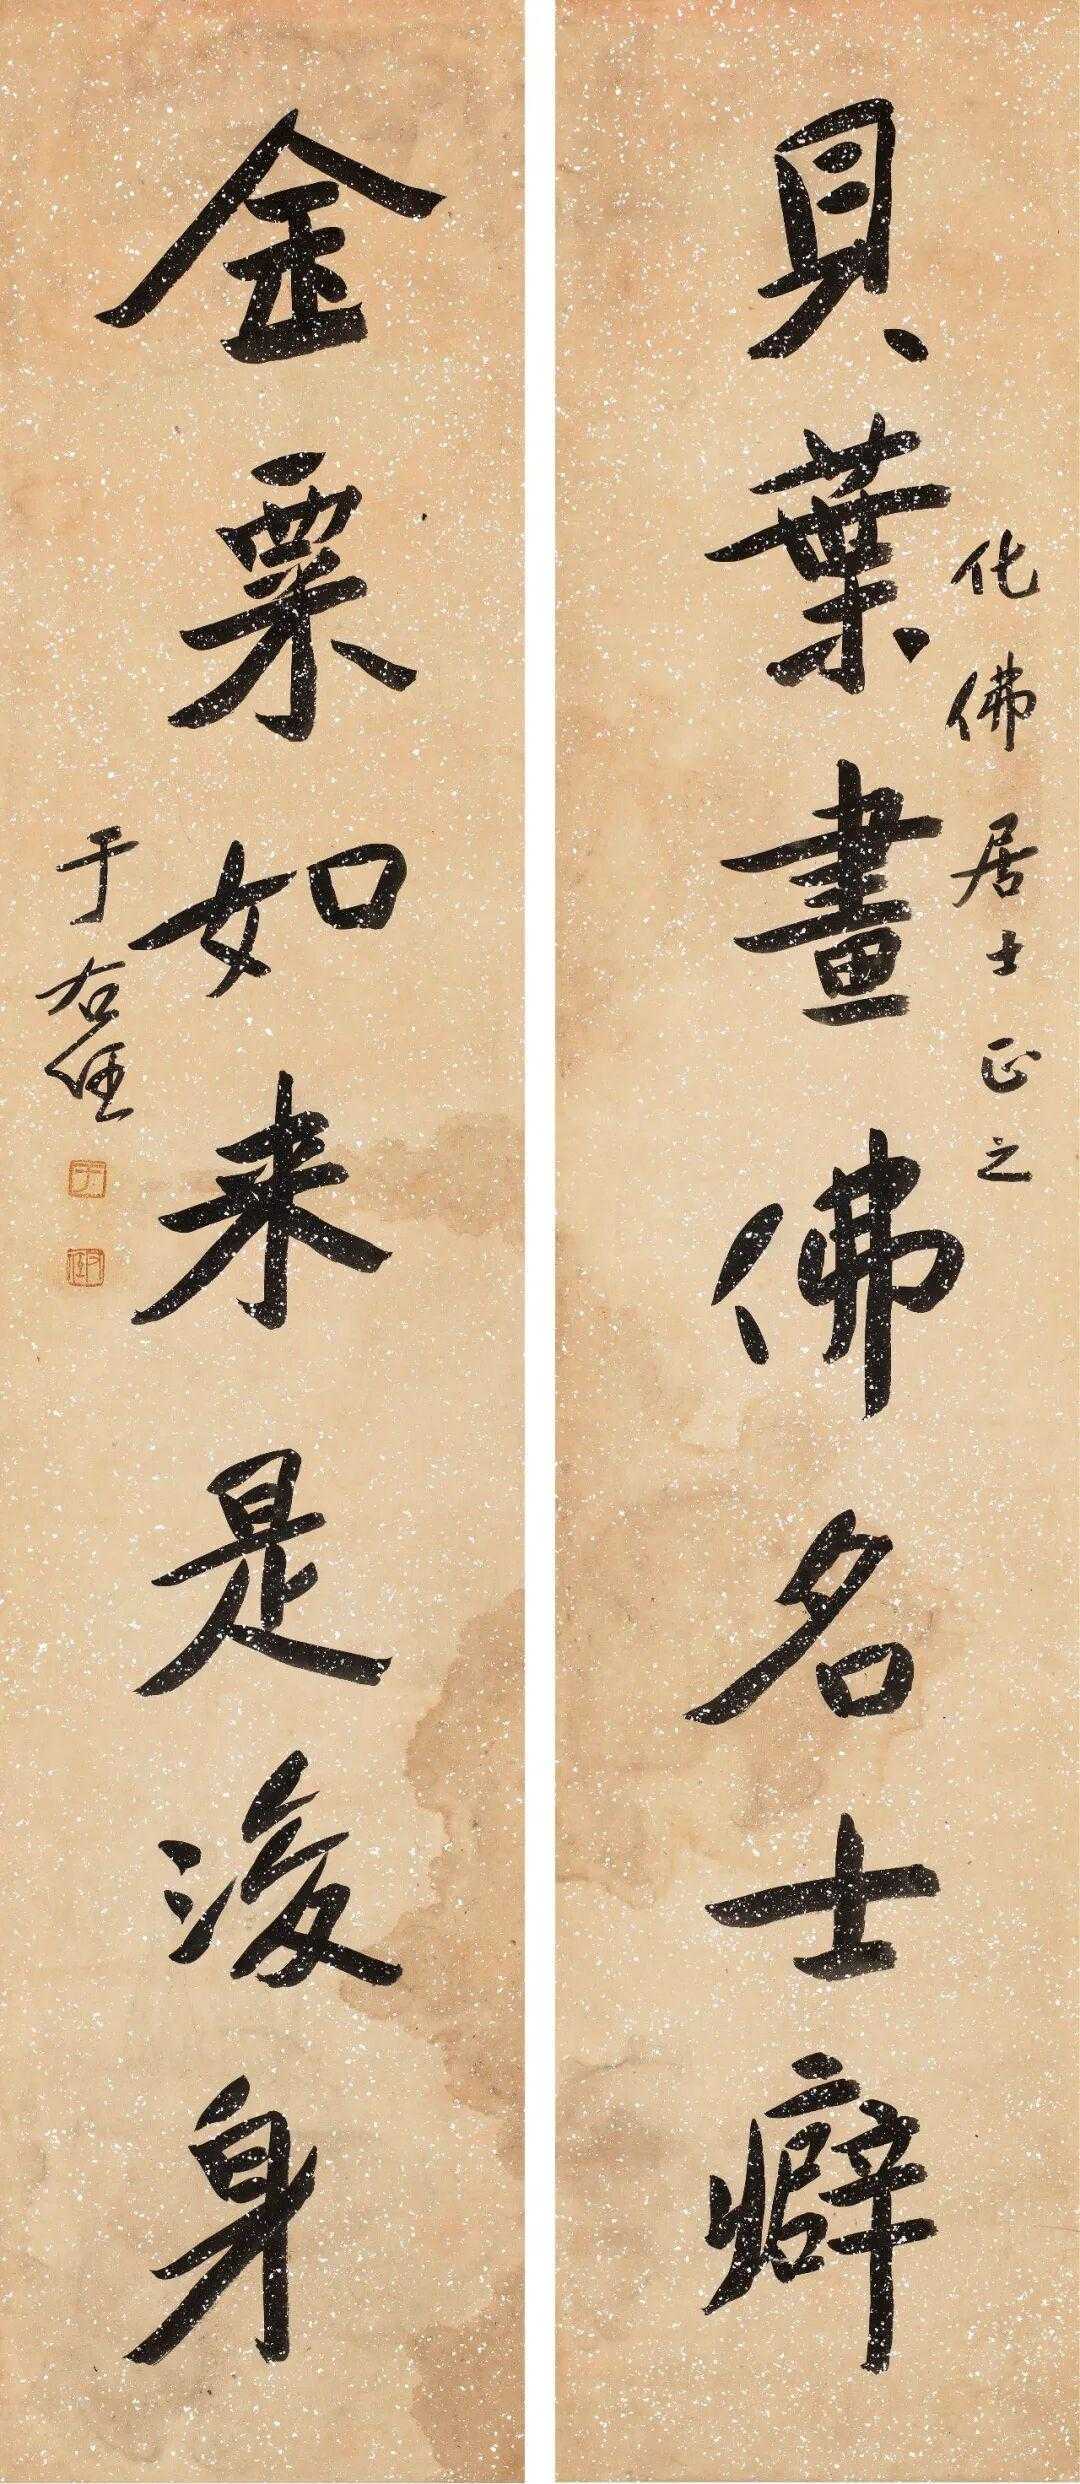 貝葉畫佛名士癖
化佛居士正之
金粟如来是後身
于右任